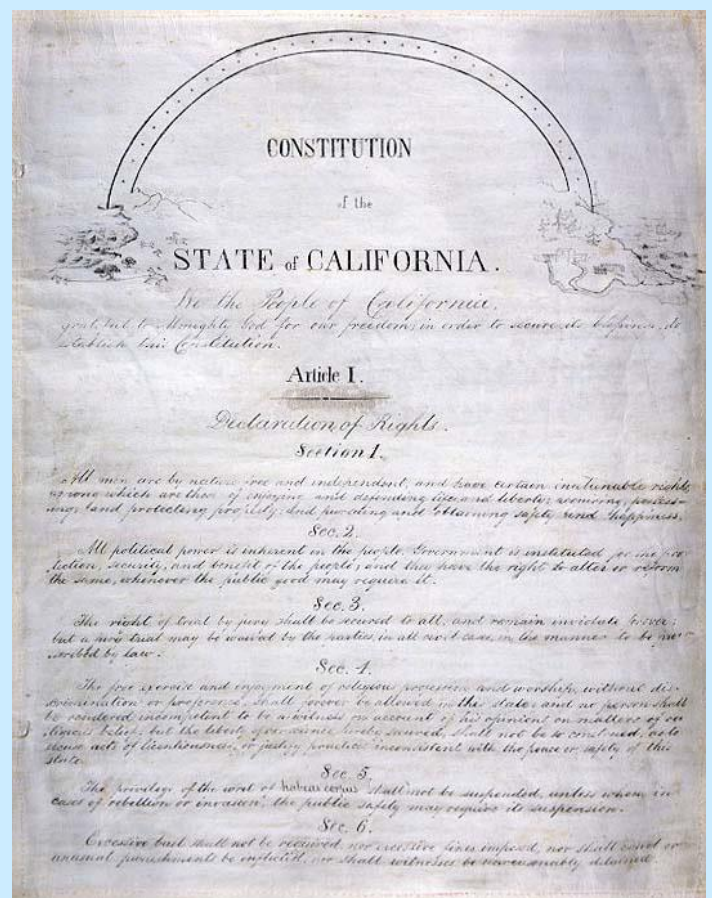 CONSTITUTION
of the
STATE of CALIFORNIA.
We the People of California,
grateful to Almighty God for our freedom, in order to secure its blessings, do
establish this Constitution.
Article I.
Declaration of Rights.
Section 1.
All men are by nature free and independent, and have certain inalienable rights,
among which are those of enjoying and defending life and liberty; acquiring, possess-
ing, and protecting property; and pursuing and obtaining safety and happiness.
Sec. 2.
All political power is inherent in the people. Government is instituted for the pro-
tection, security, and benefit of the people; and they have the right to alter or reform
the same, whenever the public good may require it.
Sec. 3.
The right of trial by jury shall be secured to all, and remain inviolate forever;
but a jury trial may be waived by the parties, in all civil cases, in the manner to be pre-
scribed by law.
Sec. 4.
The free exercise and enjoyment of religious profession and worship, without dis-
crimination or preference, shall forever be allowed in this state; and no person shall
be rendered incompetent to be a witness on account of his opinions on matters of re-
ligious belief; but the liberty of conscience hereby secured, shall not be so construed, as to
excuse acts of licentiousness, or justify practices inconsistent with the peace or safety of this
state.
Sec. 5.
The privilege of the writ of habeas corpus shall not be suspended, unless when, in
cases of rebellion or invasion, the public safety may require its suspension.
Sec. 6.
Excessive bail shall not be required, nor excessive fines imposed, nor shall cruel or
unusual punishments be inflicted, nor shall witnesses be unreasonably detained.